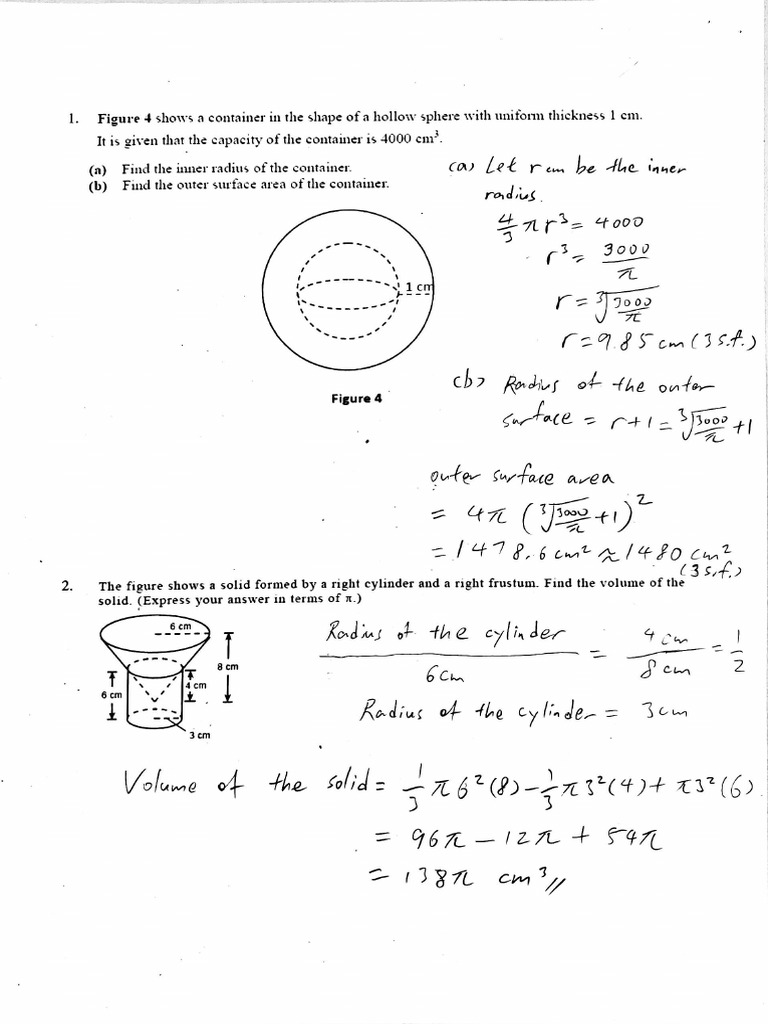 1. Figure 4 shows a container in the shape of a hollow sphere with uniform thickness 1 cm.
It is given that the capacity of the container is 4000 cm³.
(a) Find the inner radius of the container.
(b) Find the outer surface area of the container.
(a) Let r cm be the inner
radius.
4/3 π r³ = 4000
r³ = 3000/π
r = ³√(3000/π)
r = 9.85 cm (3 s.f.)
1 cm
Figure 4
(b) Radius of the outer
surface = r+1 = ³√(3000/π) +1
outer surface area
= 4π (³√(3000/π) +1)²
= 1478.6 cm² ≈ 1480 cm²
(3 s.f.)
2. The figure shows a solid formed by a right cylinder and a right frustum. Find the volume of the
solid. (Express your answer in terms of π.)
6 cm
8 cm
4 cm
6 cm
3 cm
Radius of the cylinder / 6cm = 4 cm / 8 cm = 1/2
Radius of the cylinder = 3cm
Volume of the solid = 1/3 π6²(8) − 1/3 π3²(4) + π3²(6)
= 96π − 12π + 54π
= 138π cm³//